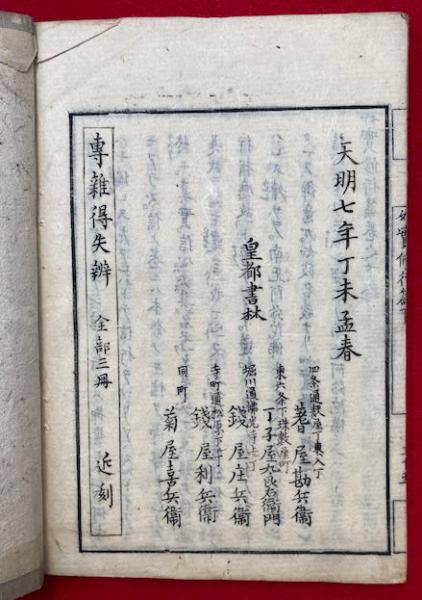 天明七年丁未孟春
皇都書林
四条通麩屋丁東入丁
蓍屋勘兵衞
東六条下珠數屋町
丁子屋九良右衞門
堀川通佛光寺下丁
錢屋庄兵衞
寺町通松原下ル丁
錢屋利兵衞
同町
菊屋喜兵衞
專雜得失辨 全部三冊 近刻